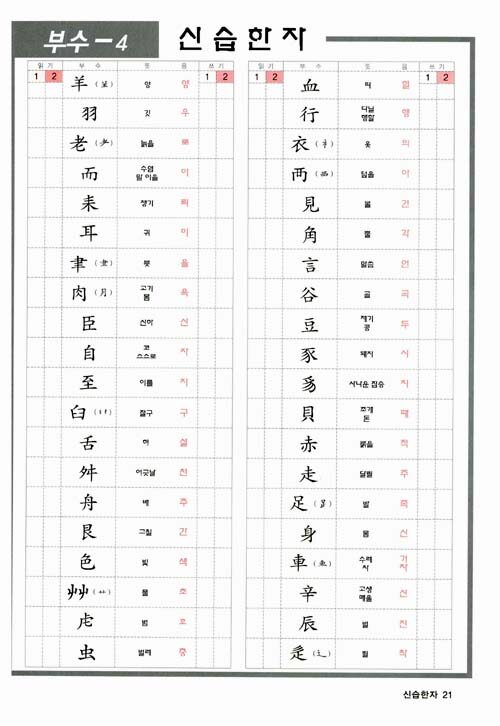 부수-4 신습한자
읽기 부수 뜻 음 쓰기
1 2 1 2
羊 양 양
羽 깃 우
老 (耂) 늙을 로
而 수염 말 이을 이
耒 쟁기 뢰
耳 귀 이
聿 붓 율
肉 (月) 고기 몸 육
臣 신하 신
自 코 스스로 자
至 이를 지
臼 절구 구
舌 혀 설
舛 어긋날 천
舟 배 주
艮 그칠 간
色 빛 색
艸 (艹) 풀 초
虍 범 호
虫 벌레 충
읽기 부수 뜻 음 쓰기
1 2 1 2
血 피 혈
行 다닐 행할 행
衣 (衤) 옷 의
襾 (覀) 덮을 아
見 볼 견
角 뿔 각
言 말씀 언
谷 골 곡
豆 제기 콩 두
豕 돼지 시
豸 사나운 짐승 치
貝 조개 돈 패
赤 붉을 적
走 달릴 주
足 발 족
身 몸 신
車 수레 차 거 차
辛 고생 매울 신
辰 별 진
辵 (辶) 착
신습한자 21